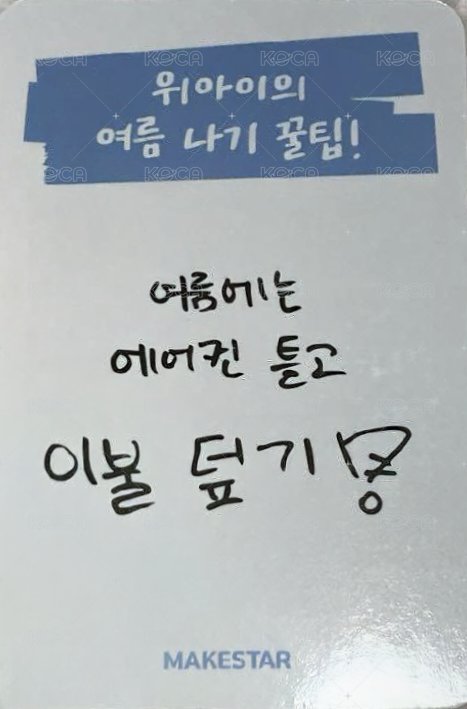 위아이의
여름 나기 꿀팁!
여름에는
에어컨 틀고
이불 덮기
MAKESTAR
KOCA